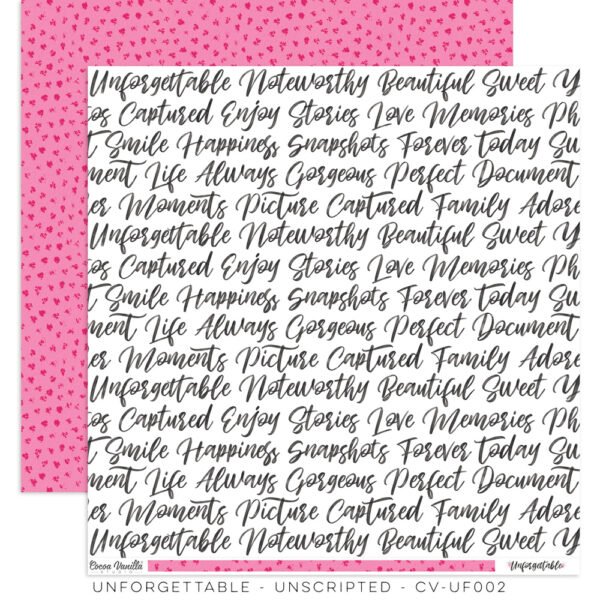 Unforgettable Noteworthy Beautiful Sweet Y
os Captured Enjoy Stories Love Memories Ph
t Smile Happiness Snapshots Forever Today Su
ment Life Always Gorgeous Perfect Document
er Moments Picture Captured Family Adore
Unforgettable Noteworthy Beautiful Sweet Y
os Captured Enjoy Stories Love Memories Ph
t Smile Happiness Snapshots Forever Today Su
ment Life Always Gorgeous Perfect Document
er Moments Picture Captured Family Adore
Unforgettable Noteworthy Beautiful Sweet Y
os Captured Enjoy Stories Love Memories Ph
t Smile Happiness Snapshots Forever Today Su
ment Life Always Gorgeous Perfect Document
er Moments Picture Captured Family Adore
Unforgettable Noteworthy Beautiful Sweet Y
Cocoa Vanilla
STUDIO
Unforgettable
UNFORGETTABLE - UNSCRIPTED - CV-UF002